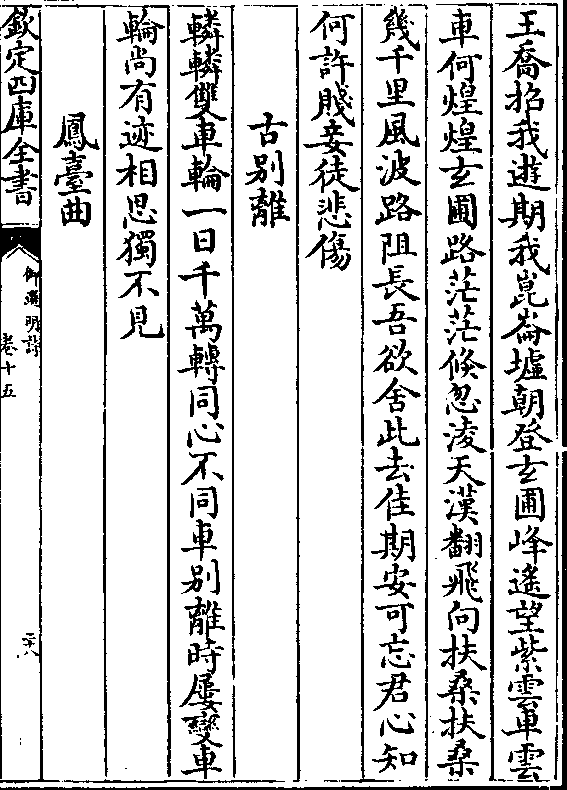 王喬招我遊期我崑崙墟朝登玄圃峰遙望紫雲車雲
車何煌煌玄圃路茫茫倏忽淩天漢翻飛向扶桑扶桑
幾千里風波路阻長吾欲舍此去佳期安可忘君心知
何許賤妾徒悲傷
古別離
轔轔雙車輪一日千萬轉同心不同車別離時屢變車
輪尚有迹相思獨不見
鳳臺曲
欽定四庫全書
御選明詩
卷十五
二十八